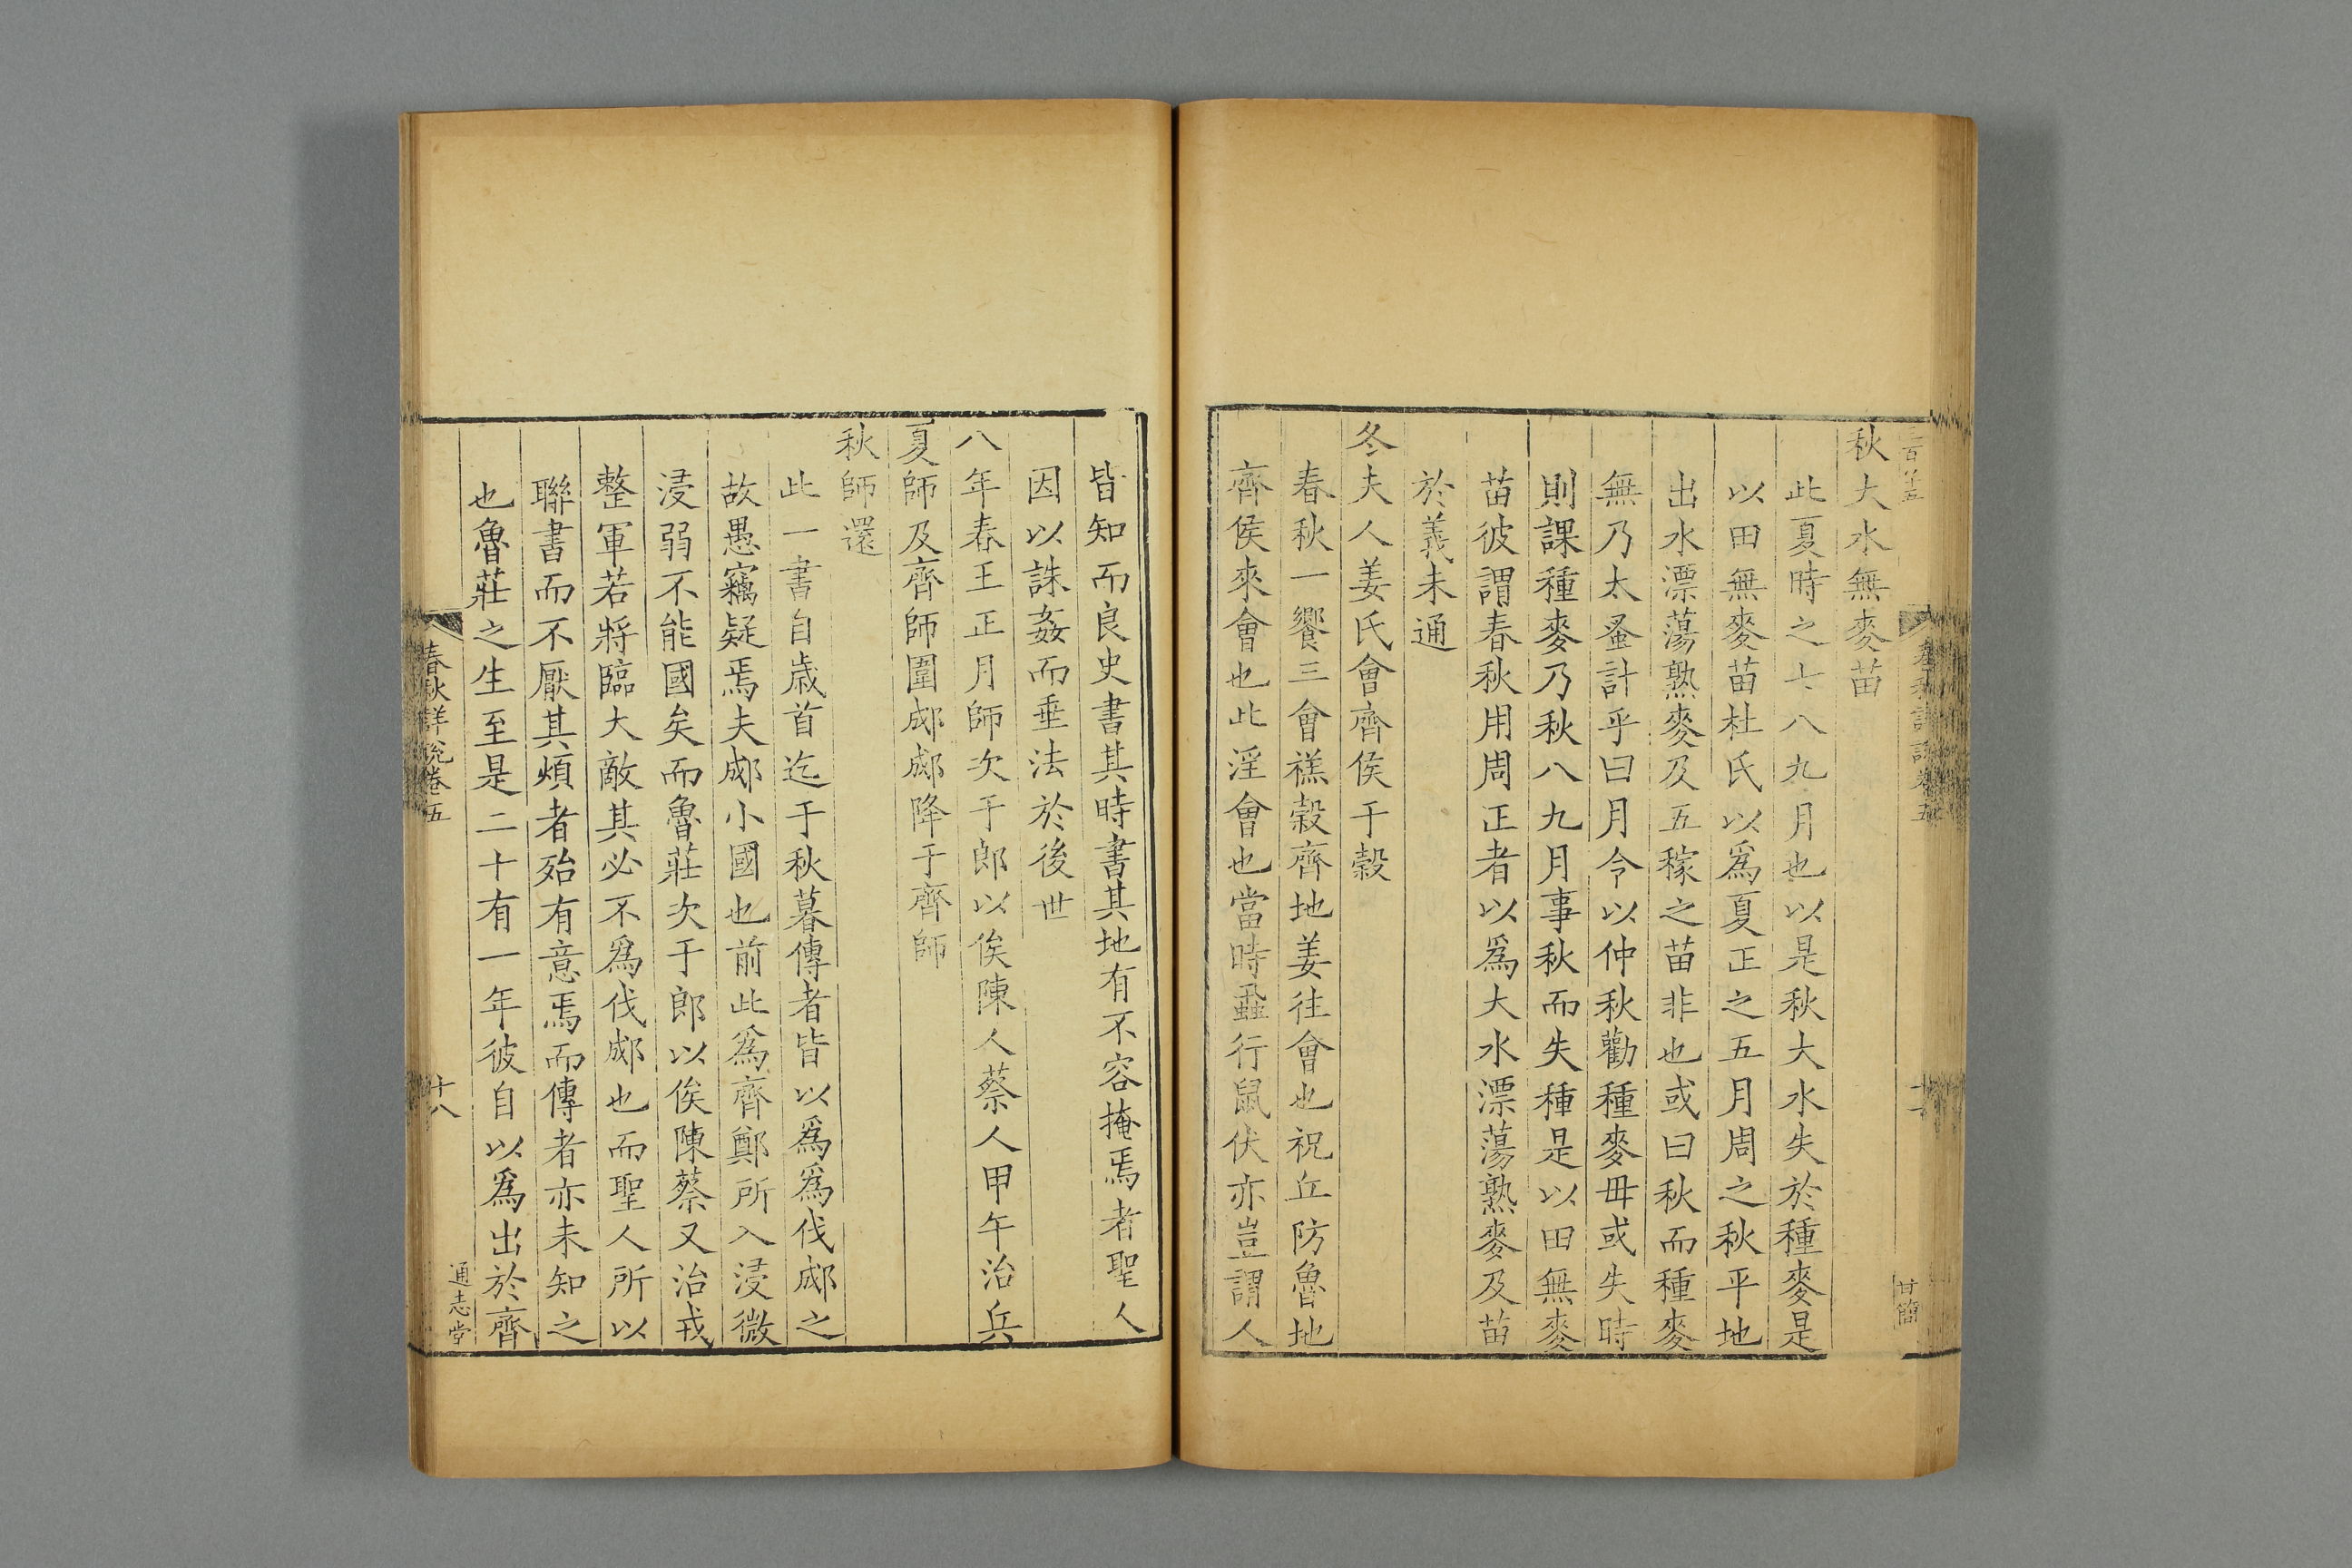 秋大水無麥苗
此夏時之七八九月也以是秋大水失於種麥是
以田無麥苗杜氏以爲夏正之五月周之秋平地
出水漂蕩熟麥及五稼之苗非也或曰秋而種麥
無乃太蚤計乎曰月令以仲秋勸種麥毋或失時
則課種麥乃秋八九月事秋而失種是以田無麥
苗彼謂春秋用周正者以爲大水漂蕩熟麥及苗
於義未通
冬夫人姜氏會齊侯于穀
春秋一饗三會禚穀齊地姜往會也祝丘防魯地
齊侯來會也此淫會也當時蝨行鼠伏亦豈謂人
甘簡
皆知而良史書其時書其地有不容掩焉者聖人
因以誅姦而垂法於後世
八年春王正月師次于郎以俟陳人蔡人甲午治兵
夏師及齊師圍郕郕降于齊師
秋師還
此一書自歲首迄于秋暮傳者皆以爲爲伐郕之
故愚竊疑焉夫郕小國也前此爲齊鄭所入浸微
浸弱不能國矣而魯莊次于郎以俟陳蔡又治戎
整軍若將臨大敵其必不爲伐郕也而聖人所以
聯書而不厭其煩者殆有意焉而傳者亦未知之
也魯莊之生至是二十有一年彼自以爲出於齊
春秋詳說卷五
十八
通志堂